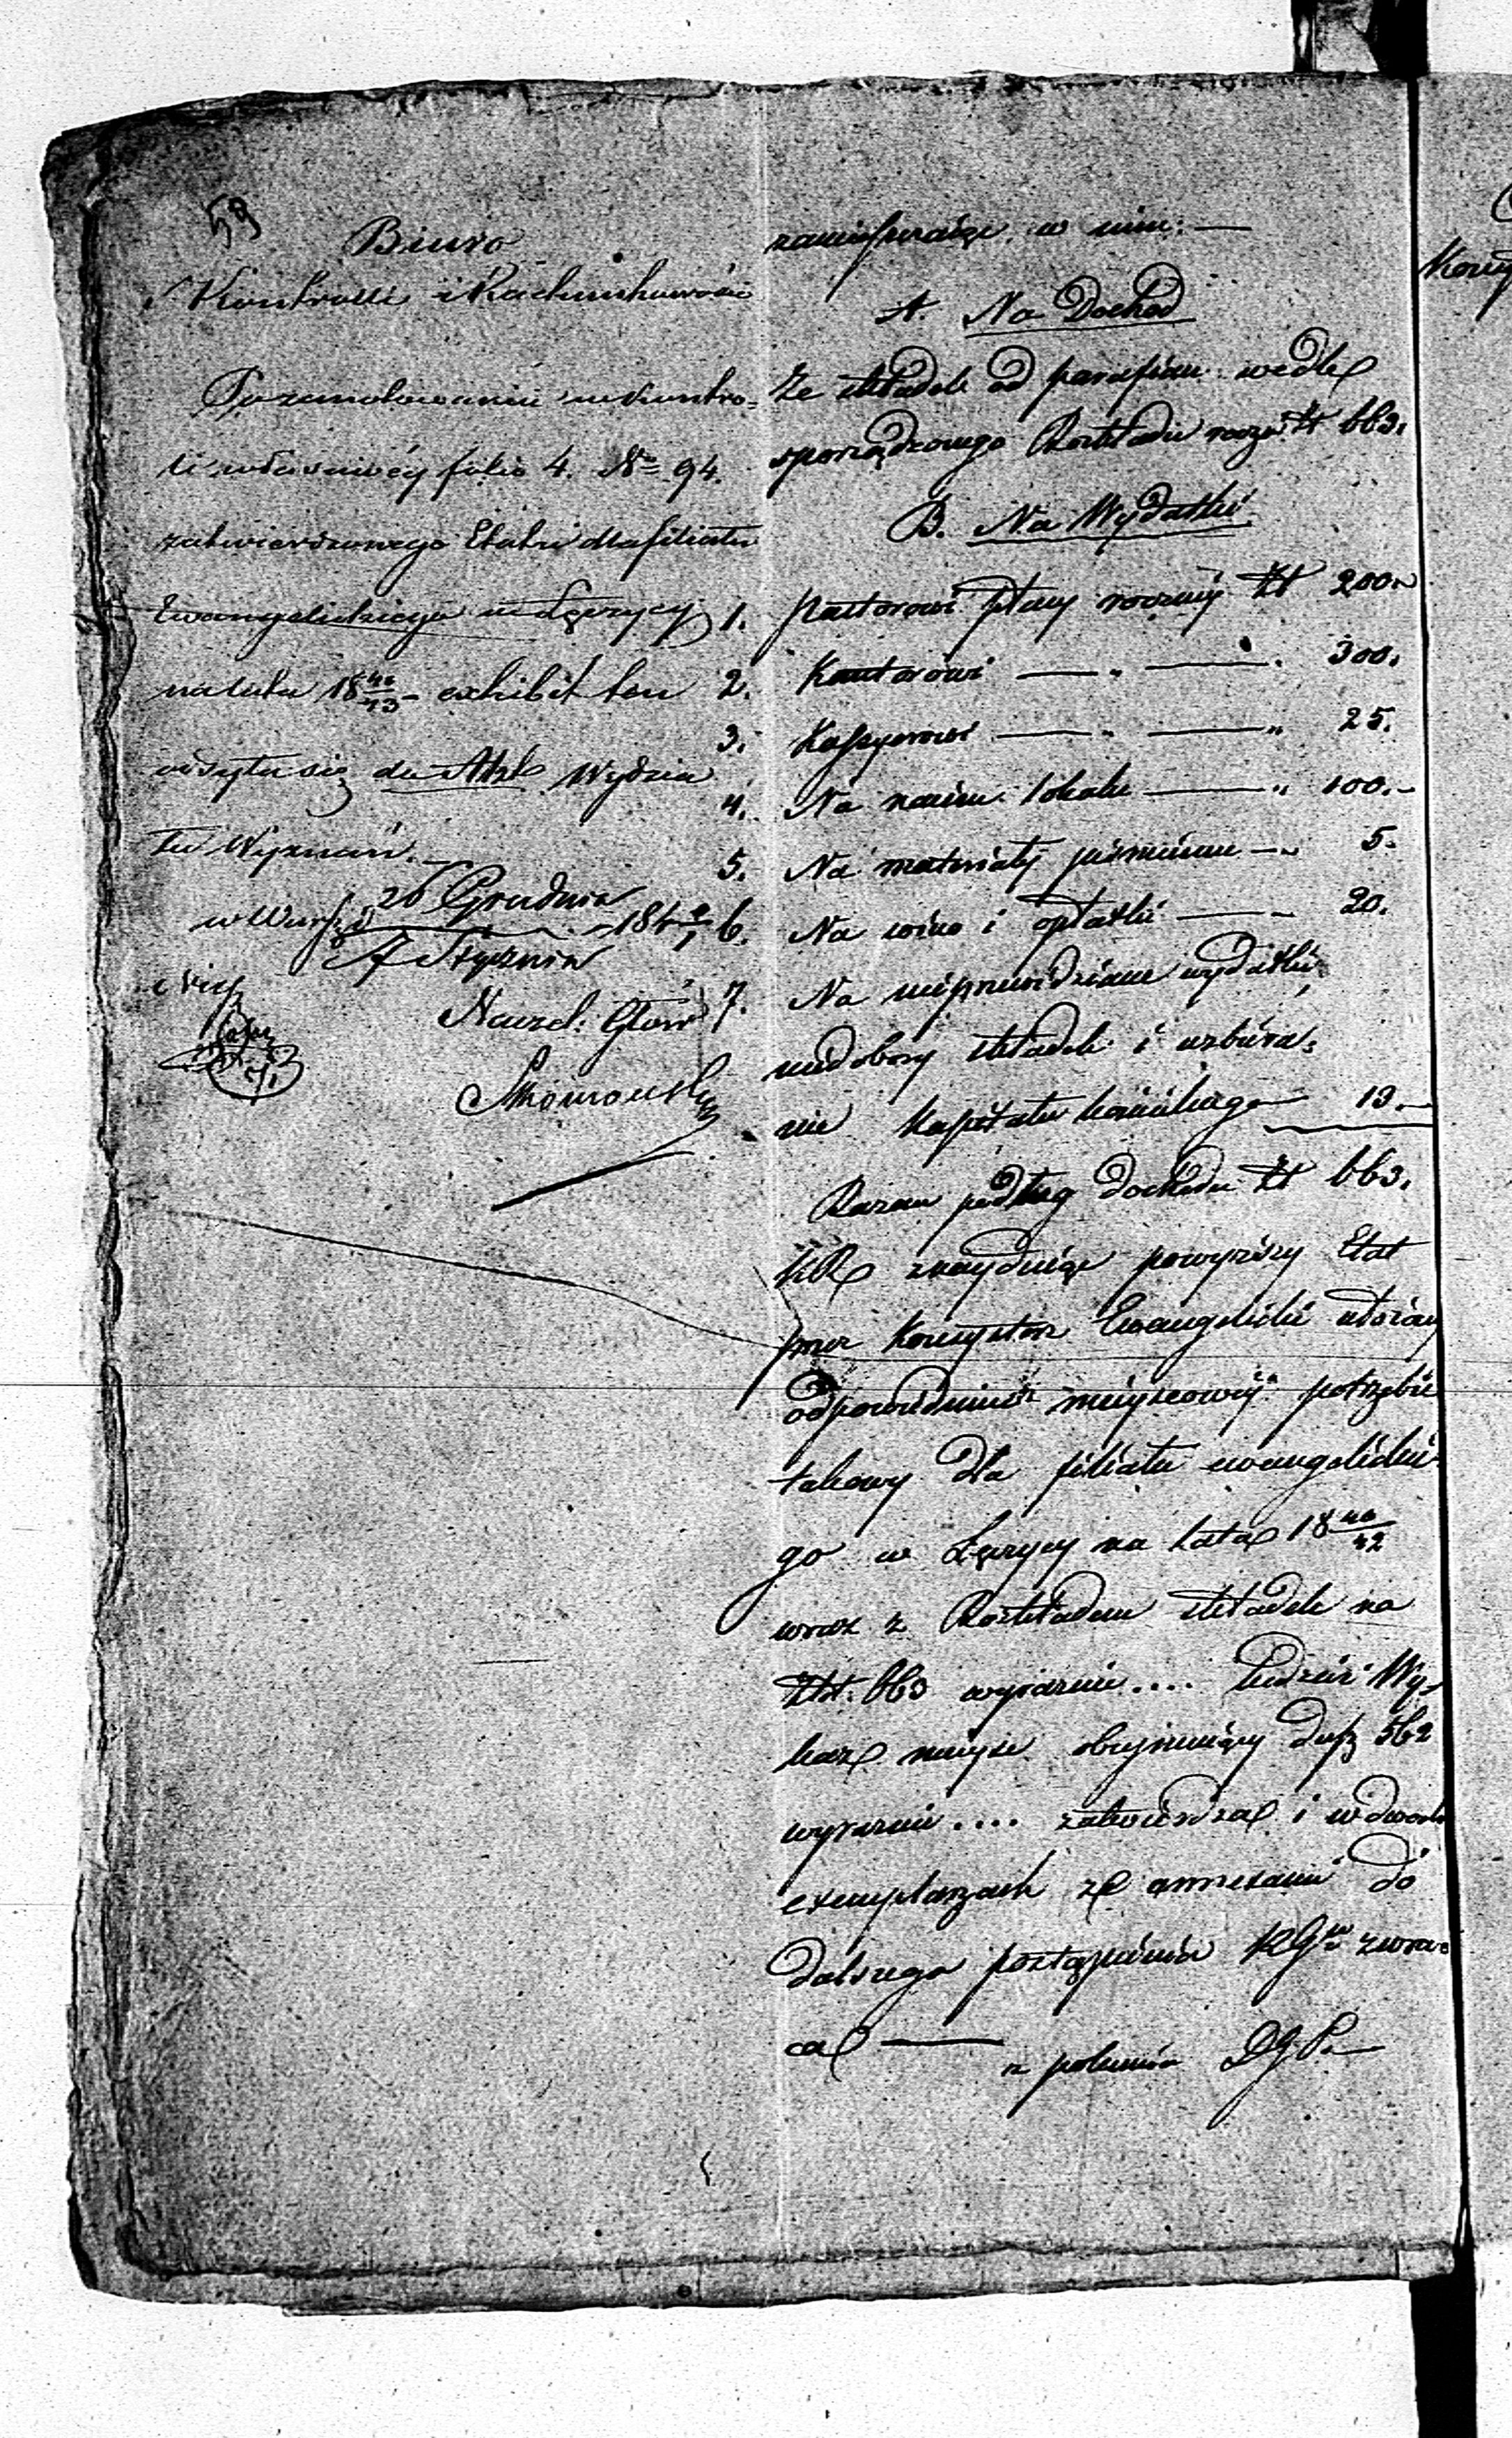 59
Biuro
Kontrolli i Rachunkowości
Po zanotowaniu w Kontro-
li właściwéy folio 4. No 94.
zatwierdzonego Etatu dla filiału
Ewangelickiego w Łęczycy
na lata 18 40/43 exhibit ten
odsyła się do Wydzia
łu Wyznań.
w Warsz. d. 26 Grudnia
7 Stycznia 184 0/1
Naczel: Głów
zamieszczaiąc w nim: —
A. Na Dochod
Ze składek od parafian wedle
sporządzonego Rozkładu roczn. Zł 663.
B. Na Wydatki
1. Pastorowi płacy roczney Zł 200.
2. Kantorowi — „ — „ 300.
3. Kassyerowi — „ — „ 25.
4. Na naiem lokalu — „ 100.
5. Na materiały piśmienne — „ 5.
6. Na wino i opłatki — „ 20.
7. Na nieprzewidziane wydatki,
niedobory składek i uzbiera-
nie kapitału kościelnego 13.
Razem podług dochodu Zł 663.
KR znayduiąc powyższy Etat
przez Konsystorz Ewangelicki ułożony
odpowiednim mieyscowéy potrzebie
takowy dla filiału ewangelickie
go w Łęczycy na lata 18 40/42
wraz z Rozkładem składek na
Złt. 663 wyraźnie .... tudzież Wy-
kaz mieysc obeymuiący dusz 562
wyraźnie .... zatwierdza i w dwoch
exemplarzach z annexami do
dalszego postąpienia RGu zwra-
ca —
z polecenia DGP.